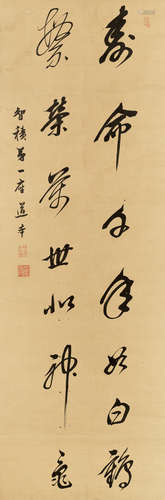 壽命千年如白鶴
繁榮萬世似神龜
智積第一座道本